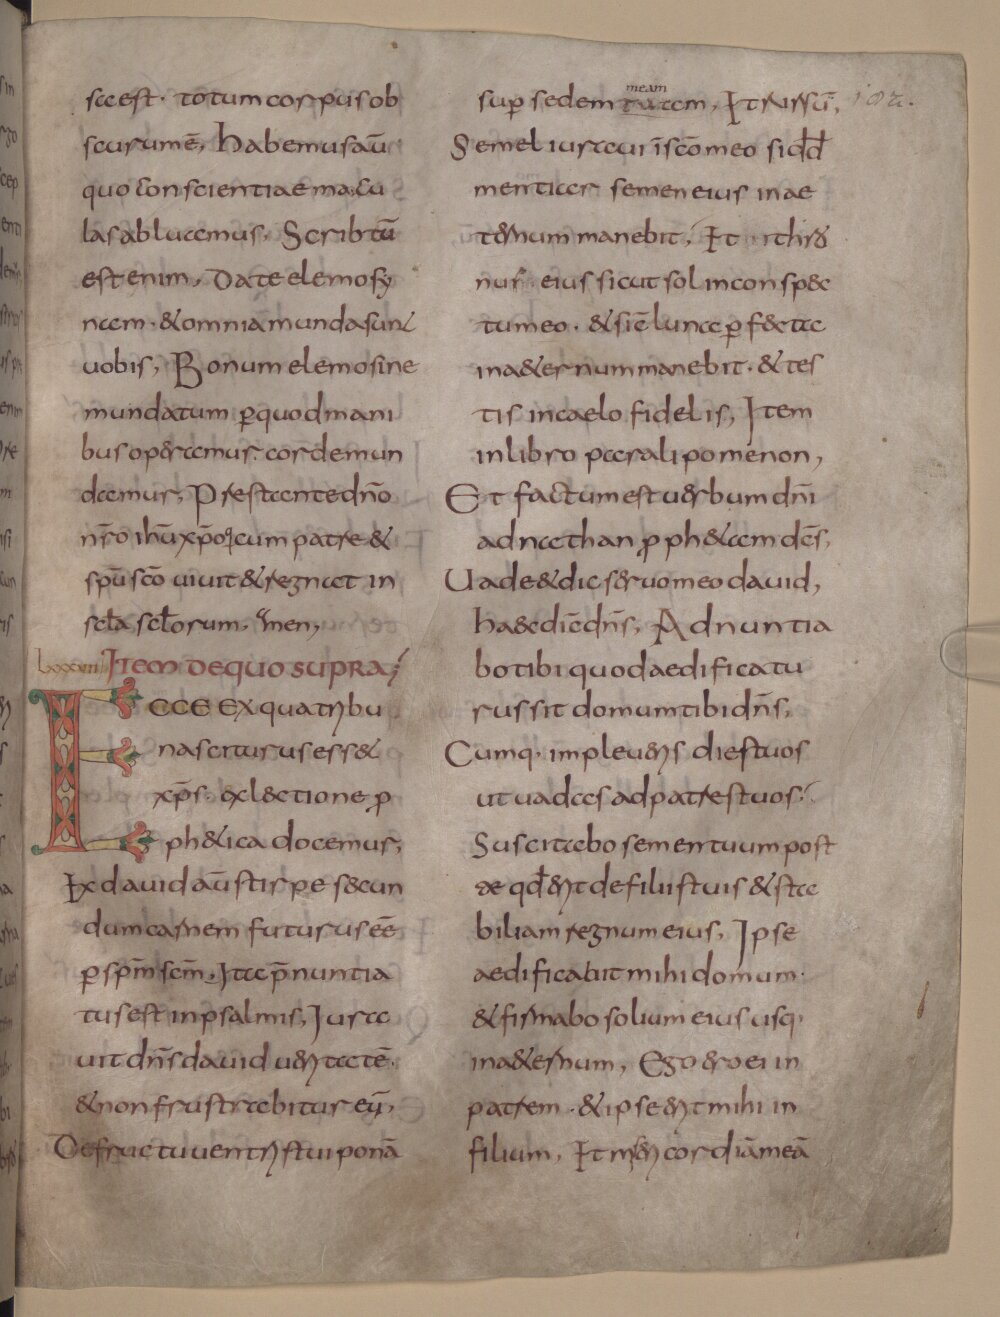 sa est. totum corpus ob
scurum ē, habemus aū
quo conscientiae macu
las abluamus. Scribtū
est enim, Date elemosy
nam. & omnia munda sunt
uobis, Bonum elemosine
mundatum ꝑ quod mani
bus operamur cor demun
damur, Prestante dn̄o
nr̄o ih̄u xp̄o q̣ cum patre &
sp̄u sc̄o uiuit & regnat in
scl̄a scl̄orum, amen,
lxxxuiii Item de quo supra,
Ecce ex quatribu
nasciturus esset
xp̄s. ex lectione ꝓ
phetica docemus,
Ex dauid aū stirpe secun
dum carnem futurus eē
ꝑ sp̄m scm̄, Ita p̄nuntia
tus est in psalmis, Iura
uit dn̄s dauid ueritatē.
& non frustrabitur eū,
De fructu uentris tui ponā
suꝑ sedem tuam, Et rursū,
meam
102.
Semel iuraui in sc̄o meo si dd̄
mentiar semen eius in ae
ternum manebit, Et thro
nus eius sicut sol in conspec
tu meo. & sic̄ luna ꝑfecta
in aeternum manebit. & tes
tis in caelo fidelis, Item
in libro paralipomenon,
Et factum est uerbum dn̄i
ad nathan ꝓphetam dc̄s,
Uade & dic seruo meo dauid,
haec dic̄ dn̄s, Adnuntia
bo tibi quod aedificatu
rus sit domum tibi dn̄s,
Cumq. impleueris dies tuos
ut uadas ad patres tuos,
Suscitabo semen tuum post
te qd̄ erit de filiis tuis & sta
biliam regnum eius, Ipse
aedificabit mihi domum.
& firmabo solium eius usq.
in aeternum, Ego ero ei in
patrem. & ipse erit mihi in
filium, Et misericordiā meā